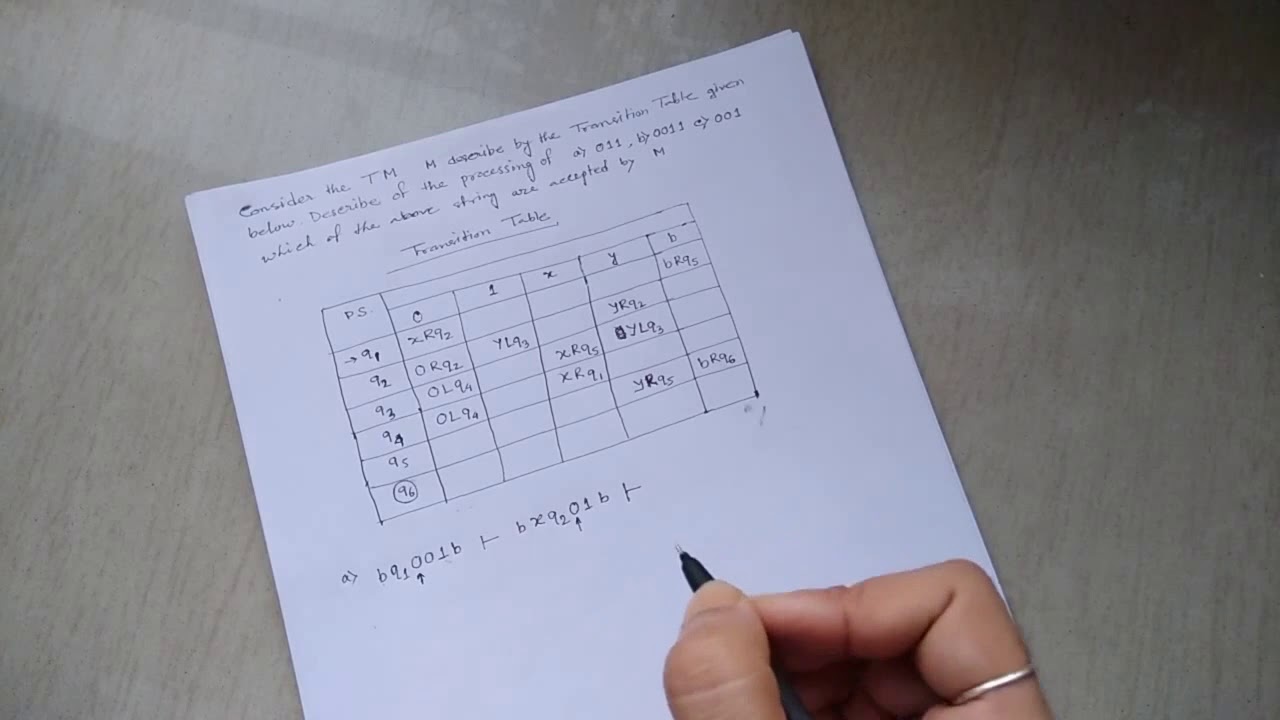 Consider the TM M describe by the Transition Table given
below. Describe of the processing of a) 011, b) 0011 c) 001
which of the above string are accepted by M
Transition Table
P.S. 0 1 x y b
→ q1 xRq2 bRq5
q2 0Rq2 YLq3 YRq2
q3 0Lq4 xRq5 YLq3
q4 0Lq4 xRq1
q5 yRq5 bRq6
q6
a) bq1001b ⊢ bxq201b ⊢